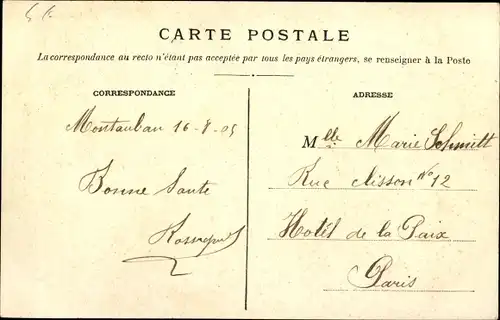 CARTE POSTALE
La correspondance au recto n'étant pas acceptée par tous les pays étrangers, se renseigner à la Poste
CORRESPONDANCE
Montauban 16-8-05
Bonne Sante
ADRESSE
Mlle Marie Schmitt
Rue Nisson No 12
Hotél de la Paix
Paris